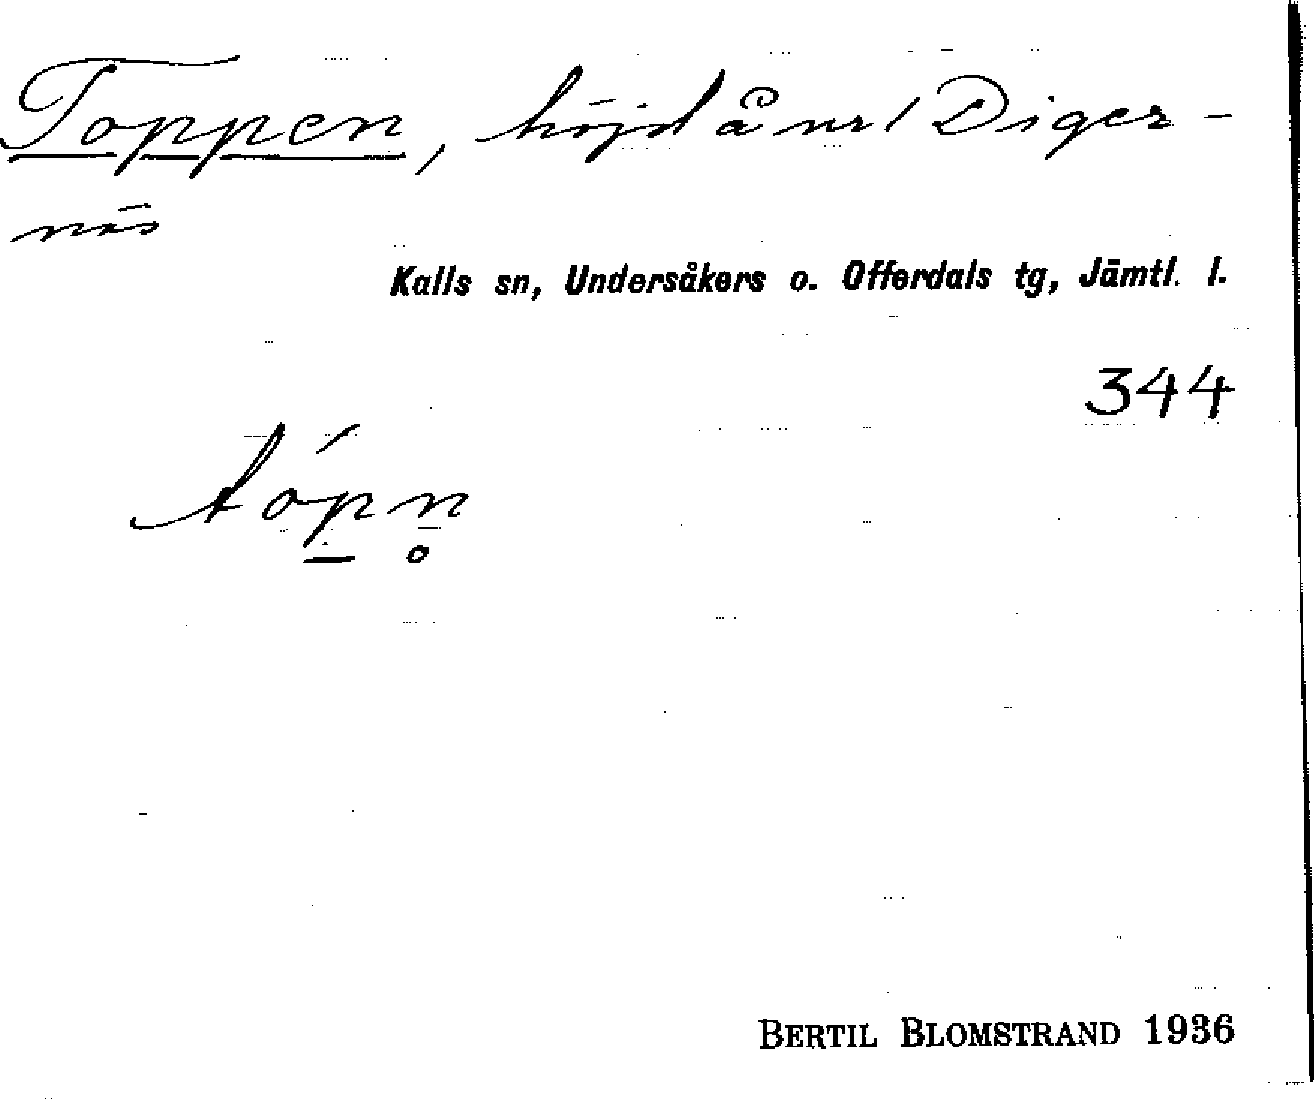 Toppen, höjd å nr 1 Diger-
näs
Kalls sn, Undersåkers o. Offerdals tg, Jämtl. l.
344
tóp̲n̥
BERTIL BLOMSTRAND 1936